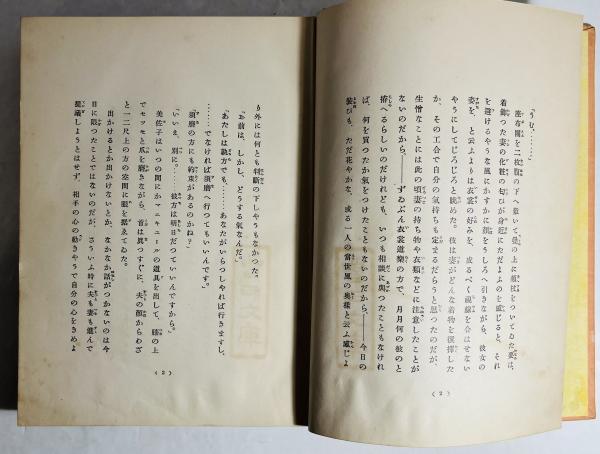 「うん、……」
座布團を二枚腹の下へ敷いて疊の上に頬杖をついてゐた要は、
着飾つた妻の化粧の匂ひが身近にたゞよふのを感じると、それ
を避けるやうな風にかすかに顔をうしろへ引きながら、彼女の
姿を、と云ふよりは衣裳の好みを、成るべく視線を合はせない
やうにしてじろじろと眺めた。彼は妻がどんな着物を選擇した
か、その工合で自分の氣持も定まるだらうと思つたのだが、
生憎なことには此の頃妻の持ち物や衣類などに注意したことが
ないのだから、――ずゐぶん衣裳道樂の方で、月月何の彼のと
拵へるらしいのだけれども、いつも相談に與つたこともなけれ
ば、何を買つたか氣をつけたこともないのだから、――今日の
裝ひも、ただ花やかな、或る一人の當世風の奧様と云ふ感じよ
(2)
り外には何とも判斷の下しやうもなかつた。
「お前は、しかし、どうする氣なんだ」
「あたしは孰方でも、……あなたがいらつしやれば行きますし、
……でなければ須磨へ行つてもいいんです」
「須磨の方にも約束があるのかね?」
「いいえ、別に。……彼方は明日だつていいんですから」
美佐子はいつの間にかマニキユールの道具を出して、膝の上
でセツセと爪を磨きながら、首は眞つすぐに、夫の顔からわざ
と一二尺上の方の空間に眼を据ゑてゐた。
出かけるとか出かけないとか、なかなか話がつかないのは今
日に限つたことではないのだが、さう云ふ時に夫も妻も進んで
決議しようとはせず、相手の心の動きやうで自分の心をきめよ
(3)